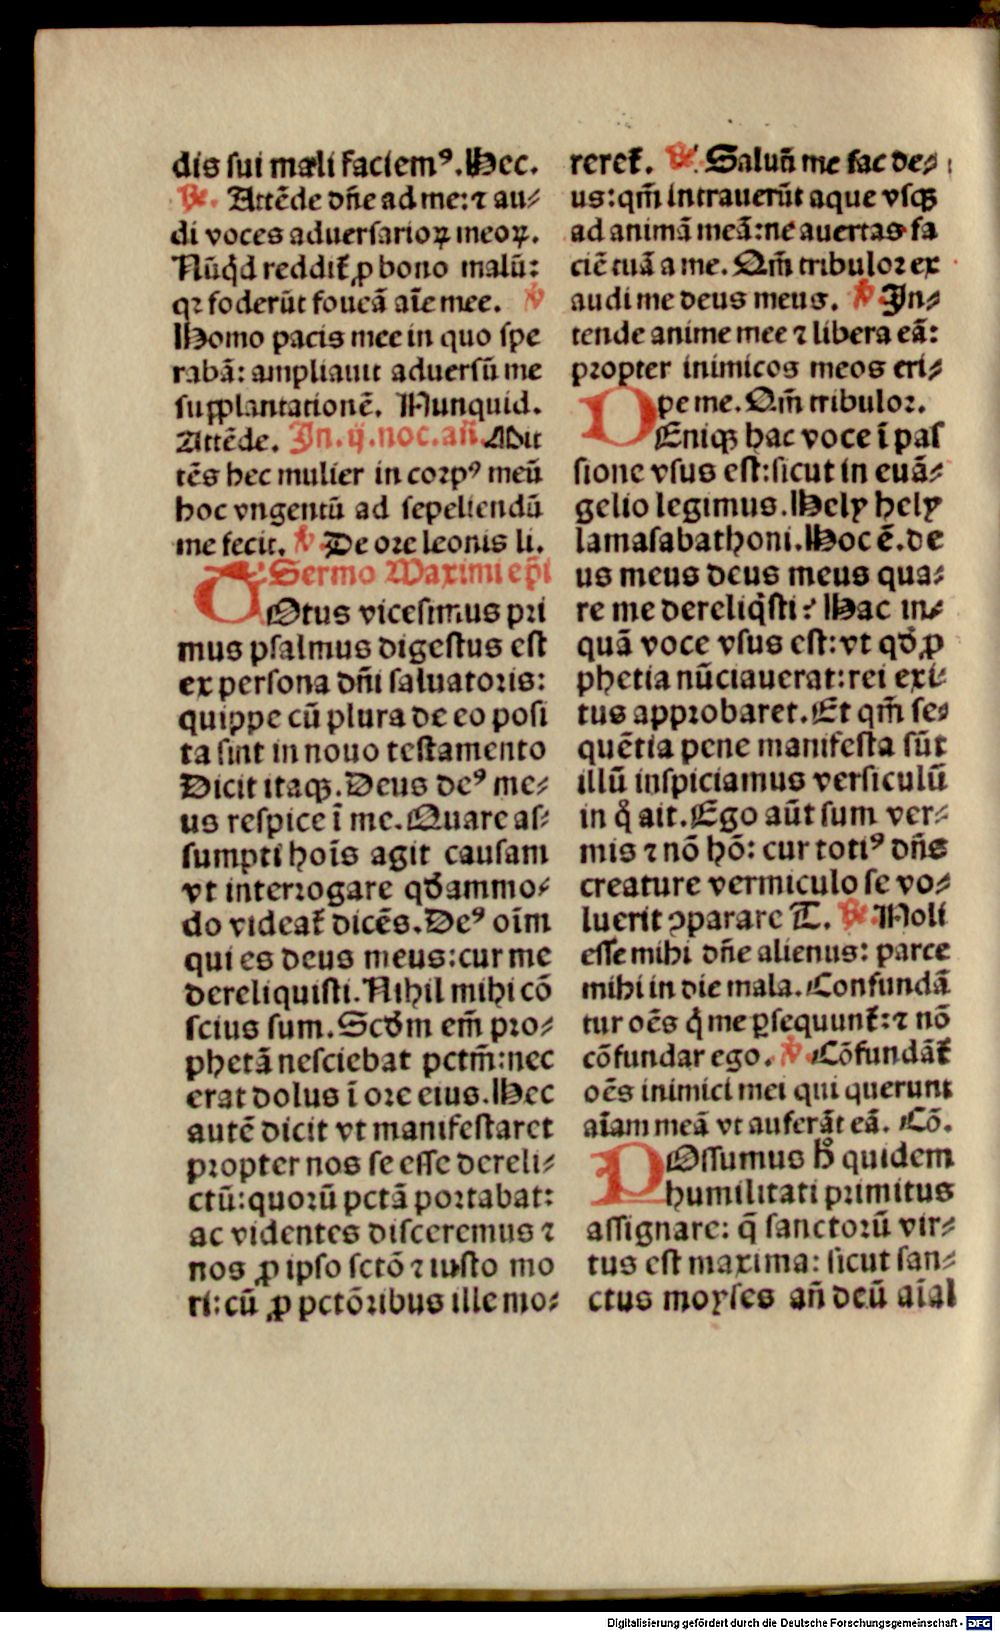 dis sui mali faciemꝰ. Hec.
℟. Attēde dn̄e ad me: ⁊ au⸗
di voces aduersarioꝝ meoꝝ.
Nūq̄d reddit᷑ ꝓ bono malū:
qꝛ foderūt foueā aīe mee. ℣
Homo pacis mee in quo spe
rabā: ampliauit aduersū me
supplantationē. Nunquid.
Attēde. In .ij. noc. an̄. Mit
tēs hec mulier in corpꝰ meū
hoc vngentū ad sepeliendū
me fecit. ℣ De ore leonis li.
Sermo Maximi ep̄i
TOtus vicesimus pri
mus psalmus digestus est
ex persona dn̄i saluatoris:
quippe cū plura de eo posi
ta sint in nouo testamento
Dicit itaqꝫ. Deus deꝰ me⸗
us respice ī me. Quare as⸗
sumpti hoīs agit causam
vt interrogare qd̄ammo⸗
do videat᷑ dicēs. Deꝰ oīm
qui es deus meus: cur me
dereliquisti. Nihil mihi cō
scius sum. Scd̄m em̄ pro⸗
phetā nesciebat pctm̄: nec
erat dolus ī ore eius. Hec
autē dicit vt manifestaret
propter nos se esse dereli⸗
ctū: quorū pctā portabat:
ac videntes disceremus ⁊
nos ꝓ ipso sctō ⁊ iusto mo
ri: cū ꝓ pctōribus ille mo⸗
reret᷑. ℟. Saluū me fac de⸗
us: qm̄ intrauerūt aque vsqꝫ
ad animā meā: ne auertas fa
ciē tuā a me. Qm̄ tribulor ex
audi me deus meus. ℣ In⸗
tende anime mee ⁊ libera eā:
propter inimicos meos eri⸗
pe me. Qm̄ tribulor.
DEniqꝫ hac voce ī pas
sione vsus est: sicut in euā⸗
gelio legimus. Hely hely
lamasabathoni. Hoc ē. de
us meus deus meus qua⸗
re me dereliq̄sti? Hac in⸗
quā voce vsus est: vt qd̄ ꝓ
phetia nūciauerat: rei exi⸗
tus approbaret. Et qm̄ se⸗
quētia pene manifesta sūt
illū inspiciamus versiculū
in q̊ ait. Ego aūt sum ver⸗
mis ⁊ nō hō: cur totiꝰ dn̄s
creature vermiculo se vo⸗
luerit ꝯparare T. ℟. Noli
esse mihi dn̄e alienus: parce
mihi in die mala. Confundā
tur oēs q̇ me ꝑsequunt᷑: ⁊ nō
cōfundar ego. ℣ Cōfundāt᷑
oēs inimici mei qui querunt
aīam meā vt auferāt eā. Cō.
POssumus h̊ quidem
humilitati primitus
assignare: q̄ sanctorū vir⸗
tus est maxima: sicut san⸗
ctus moyses an̄ deū aīal
Digitalisierung gefördert durch die Deutsche Forschungsgemeinschaft - DFG